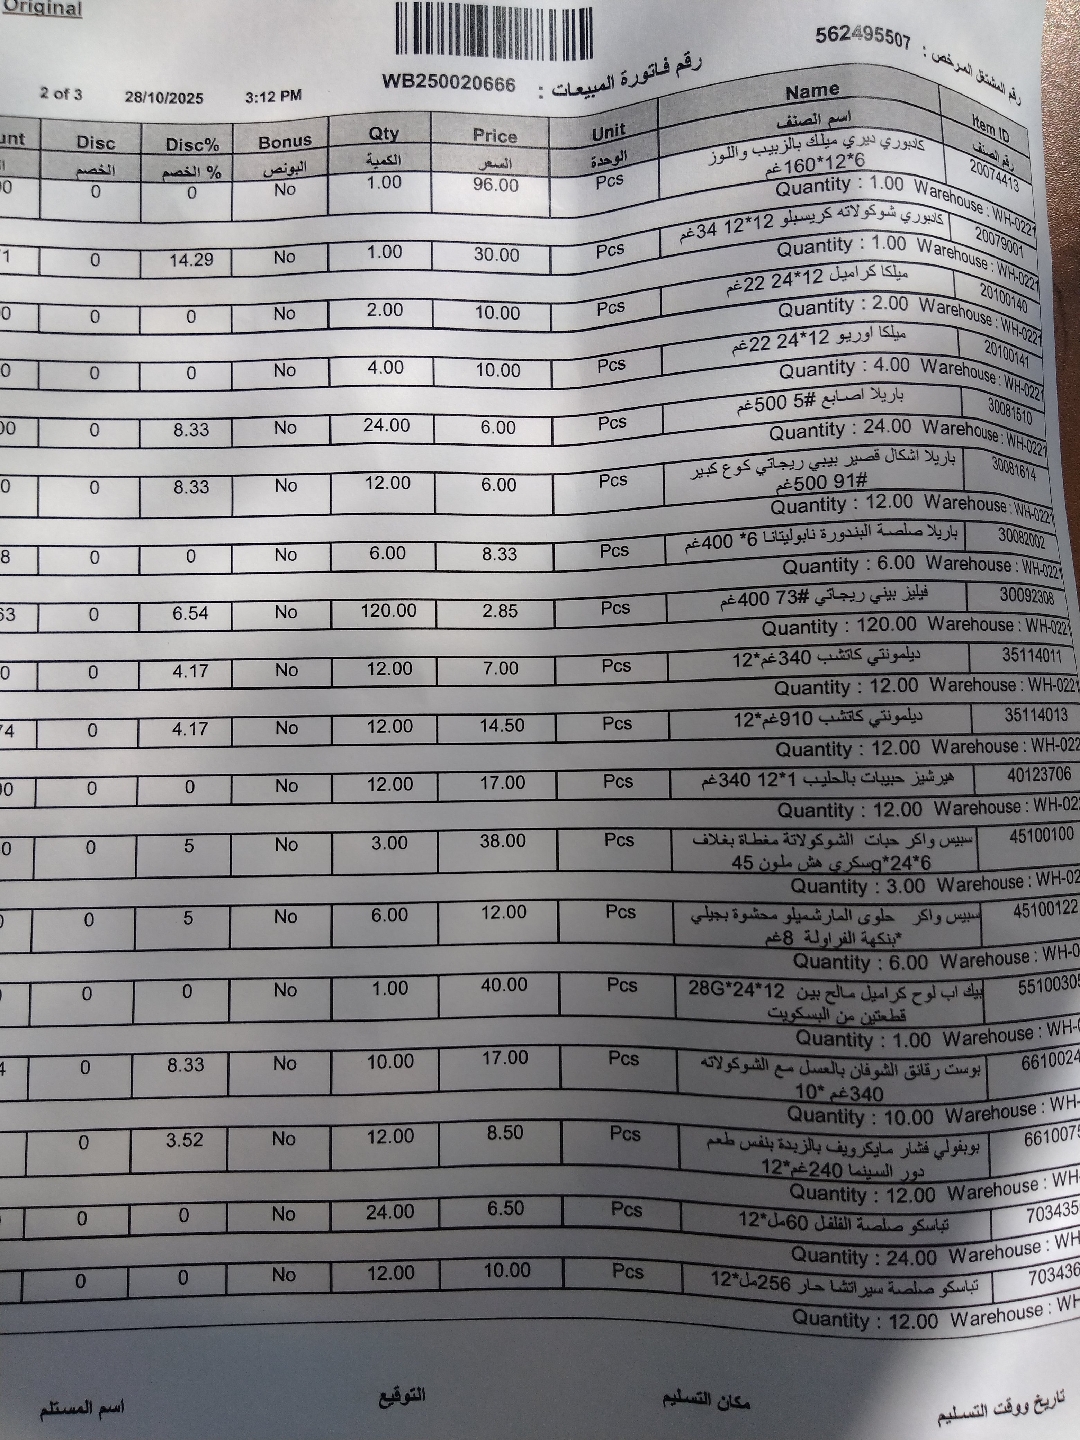 Original
رقم المشتغل المرخص : 562495507
رقم فاتورة المبيعات : WB250020666
2 of 3 28/10/2025 3:12 PM
Disc Disc% Bonus Qty Price Unit Name Item ID
الخصم % الخصم البونص الكمية السعر الوحدة اسم الصنف رقم الصنف
0 0 No 1.00 96.00 Pcs كادبوري ديري ميلك بالزبيب واللوز 20074413
6*12*160غم
Quantity : 1.00 Warehouse : WH-0221
0 14.29 No 1.00 30.00 Pcs كادبوري شوكولاته كريسبلو 12*12 34غم 20079001
Quantity : 1.00 Warehouse : WH-0221
0 0 No 2.00 10.00 Pcs ميلكا كراميل 12*24 22غم 20100140
Quantity : 2.00 Warehouse : WH-0221
0 0 No 4.00 10.00 Pcs ميلكا اوريو 12*24 22غم 20100141
Quantity : 4.00 Warehouse : WH-0221
0 8.33 No 24.00 6.00 Pcs باريلا اصابع #5 500غم 30081510
Quantity : 24.00 Warehouse : WH-0221
0 8.33 No 12.00 6.00 Pcs باريلا اشكال قصير بيبي ريجاتي كوع كبير 30081614
#91 500غم
Quantity : 12.00 Warehouse : WH-0221
0 0 No 6.00 8.33 Pcs باريلا صلصة البندورة نابوليتانا 6* 400غم 30082002
Quantity : 6.00 Warehouse : WH-0221
0 6.54 No 120.00 2.85 Pcs فيليز بيني ريجاتي #73 400غم 30092308
Quantity : 120.00 Warehouse : WH-0221
0 4.17 No 12.00 7.00 Pcs ديلمونتي كاتشب 340غم*12 35114011
Quantity : 12.00 Warehouse : WH-0221
0 4.17 No 12.00 14.50 Pcs ديلمونتي كاتشب 910غم*12 35114013
Quantity : 12.00 Warehouse : WH-022
0 0 No 12.00 17.00 Pcs هيرشيز حبيبات بالحليب 1*12 340غم 40123706
Quantity : 12.00 Warehouse : WH-022
0 5 No 3.00 38.00 Pcs سبيس واكر حبات الشوكولاتة مغطاة بغلاف 45100100
سكري هش ملون 45g*24*6
Quantity : 3.00 Warehouse : WH-02
0 5 No 6.00 12.00 Pcs سبيس واكر حلوى المارشميلو محشوة بجيلي 45100122
بنكهة الفراولة 8غم*
Quantity : 6.00 Warehouse : WH-0
0 0 No 1.00 40.00 Pcs بيك اب لوح كراميل مالح بين 28G*24*12 55100305
قطعتين من البسكويت
Quantity : 1.00 Warehouse : WH-0
0 8.33 No 10.00 17.00 Pcs بوست رقائق الشوفان بالعسل مع الشوكولاته 6610024
340غم *10
Quantity : 10.00 Warehouse : WH-
0 3.52 No 12.00 8.50 Pcs بوبفولي فشار مايكرويف بالزبدة بنفس طعم 6610075
دور السينما 240غم*12
Quantity : 12.00 Warehouse : WH-
0 0 No 24.00 6.50 Pcs تباسكو صلصة الفلفل 60مل*12 703435
Quantity : 24.00 Warehouse : WH
0 0 No 12.00 10.00 Pcs تباسكو صلصة سيراتشا حار 256مل*12 703436
Quantity : 12.00 Warehouse : WH
تاريخ ووقت التسليم مكان التسليم التوقيع اسم المستلم